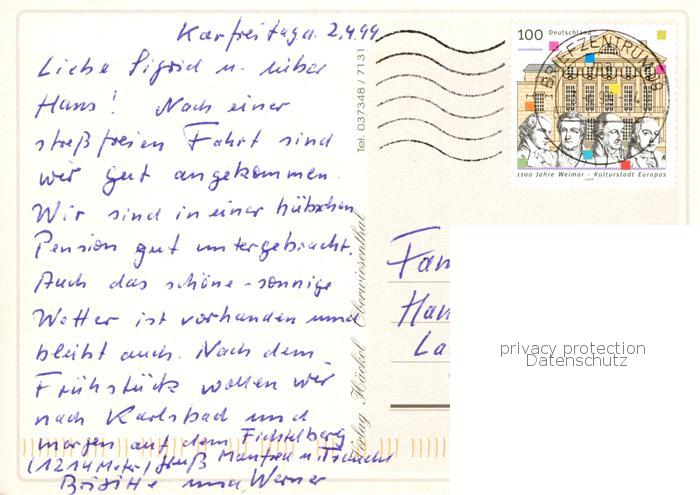 Karfreitag d. 2.4.99
Liebe Sigrid u. lieber
Hans! Nach einer
streßfreien Fahrt sind
wir gut angekommen.
Wir sind in einer hübschen
Pension gut untergebracht.
Auch das schöne-sonnige
Wetter ist vorhanden und
bleibt auch. Nach dem
Frühstück wollen wir
nach Karlsbad und
morgen auf dem Fichtelberg.
(1214 Meter) Gruß Manfred u.
Brigitte und Werner
Tel. 037348 / 7131
Verlag Häckel Oberwiesenthal
100 Deutschland
BRIEFZENTRUM 09
1100 Jahre Weimar - Kulturstadt Europas
1999
Fam
Han
La
privacy protection
Datenschutz